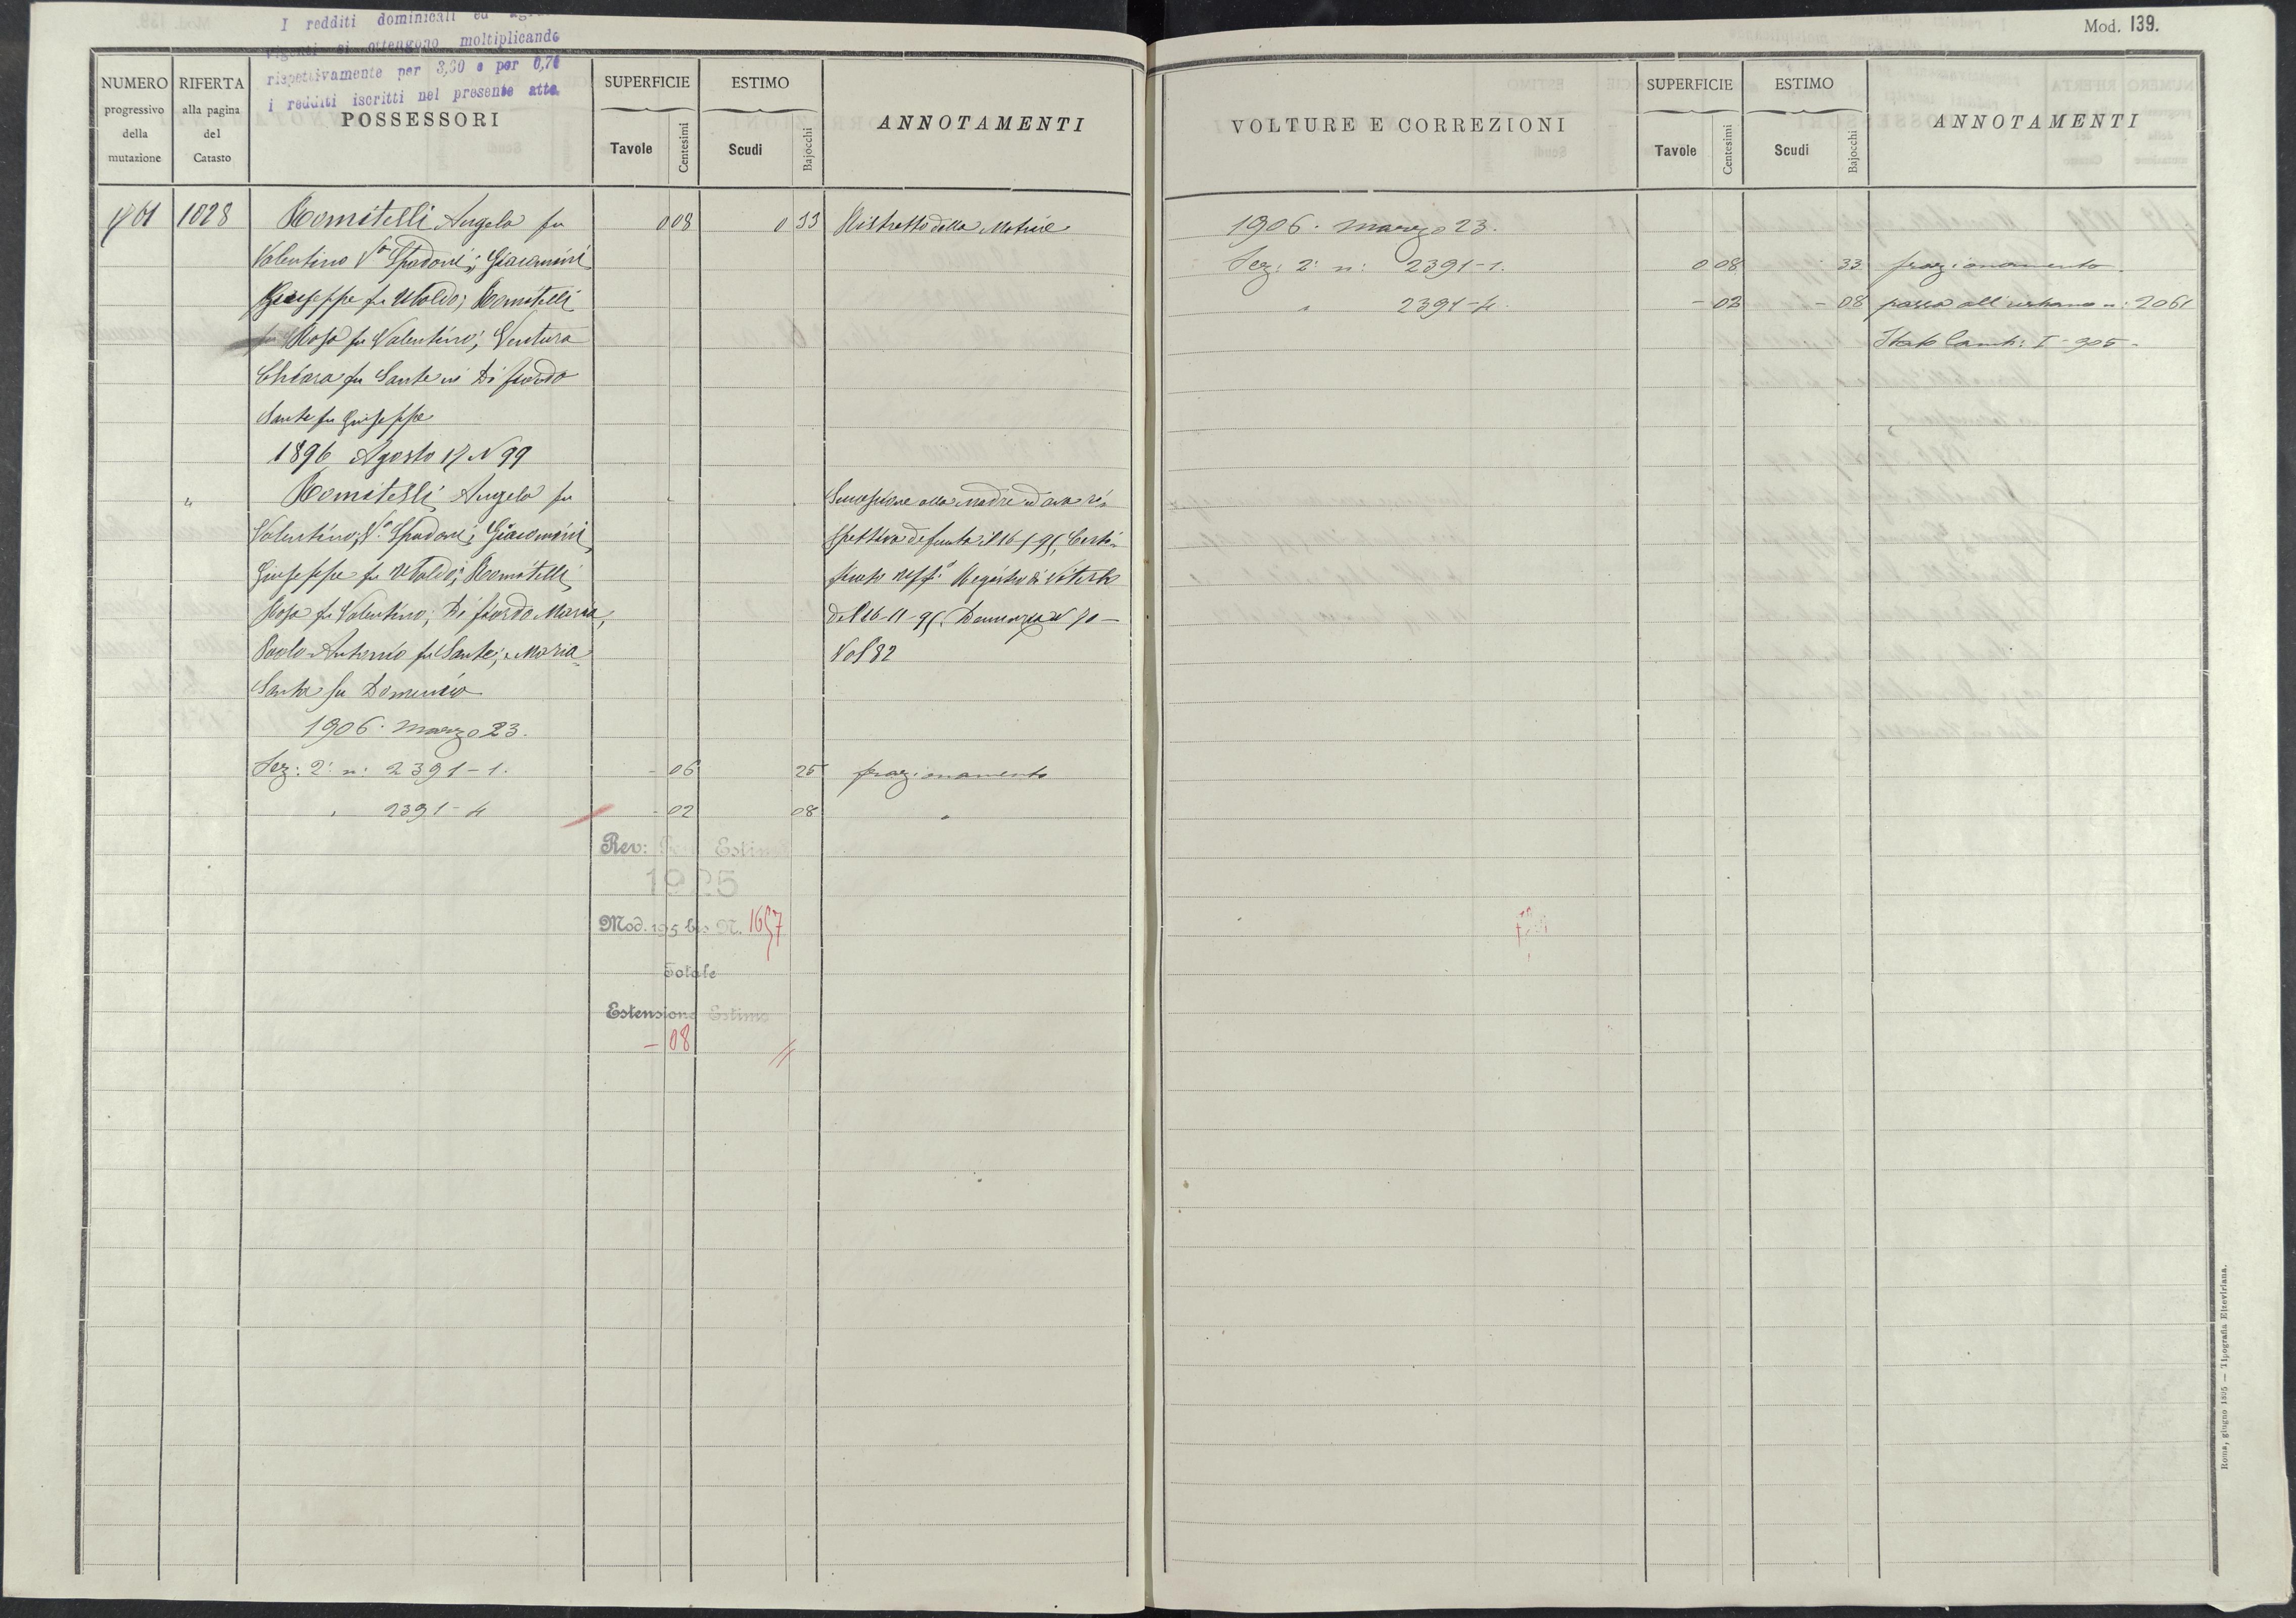 I redditi dominicali ed
vigenti si ottengono moltiplicando
rispettivamente per 3,60 e per 0,70
i redditi iscritti nel presente atto
Mod. 139.
NUMERO progressivo della mutazione
RIFERTA alla pagina del Catasto
POSSESSORI
SUPERFICIE
Tavole
Centesimi
ESTIMO
Scudi
Bajocchi
ANNOTAMENTI
1028 Romitelli Angelo fu 0 08 0 33 Ristretto della Matrice
Valentino Va Spadoni; Giacomini
Giuseppe fu Ubaldo; Romitelli
Rosa fu Valentino; Ventura
Chiara fu Sante in Di fiordo
Sante fu Giuseppe
1896 Agosto 17 N 99
" Romitelli Angelo fu " " Successione alla Madre ed ava ri=
Valentino; Va Spadoni; Giacomini spettiva defunta il 16-5-95, Certi=
Giuseppe fu Ubaldo; Romitelli Registro di Viterbo
Rosa fu Valentino; Di fiordo Maria, del 26-11-95, Denunzia N 70
Paolo Antonio fu Sante; e Maria Vol 82
Santa fu Domenico
1906. marzo 23.
Sez: 2ª n: 2391-1. - 06 25 frazionamento
" 2391-4 - 02 08 "
Rev: Estimi
1925
Mod. 195 bis N. 1657
Totale
Estensione Estimo
- 08 //
VOLTURE E CORREZIONI
SUPERFICIE
Tavole
Centesimi
ESTIMO
Scudi
Bajocchi
ANNOTAMENTI
1906. marzo 23.
Sez: 2ª n: 2391-1. 0 08 33 frazionamento
" 2391-4. - 02 - 08 passa all'urbano n: 2061
Stato Camb: I-905-
Roma, giugno 1895 — Tipografia Elzeviriana.